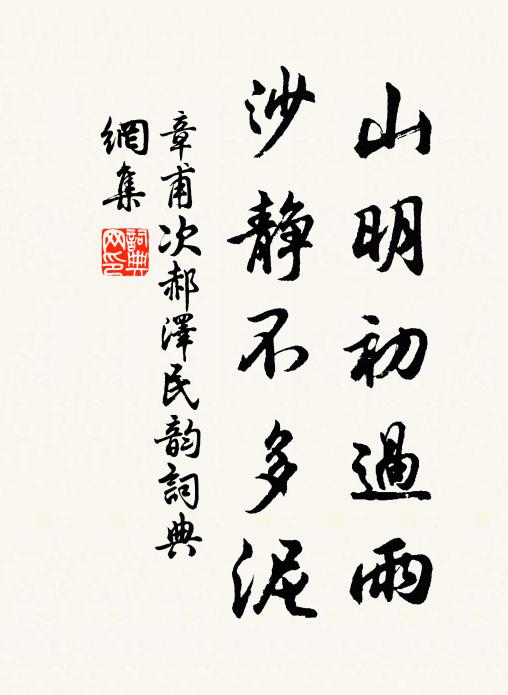 山明初過雨
沙静不多泥
章甫次郝澤民韵詞典
網集
詞典
网印